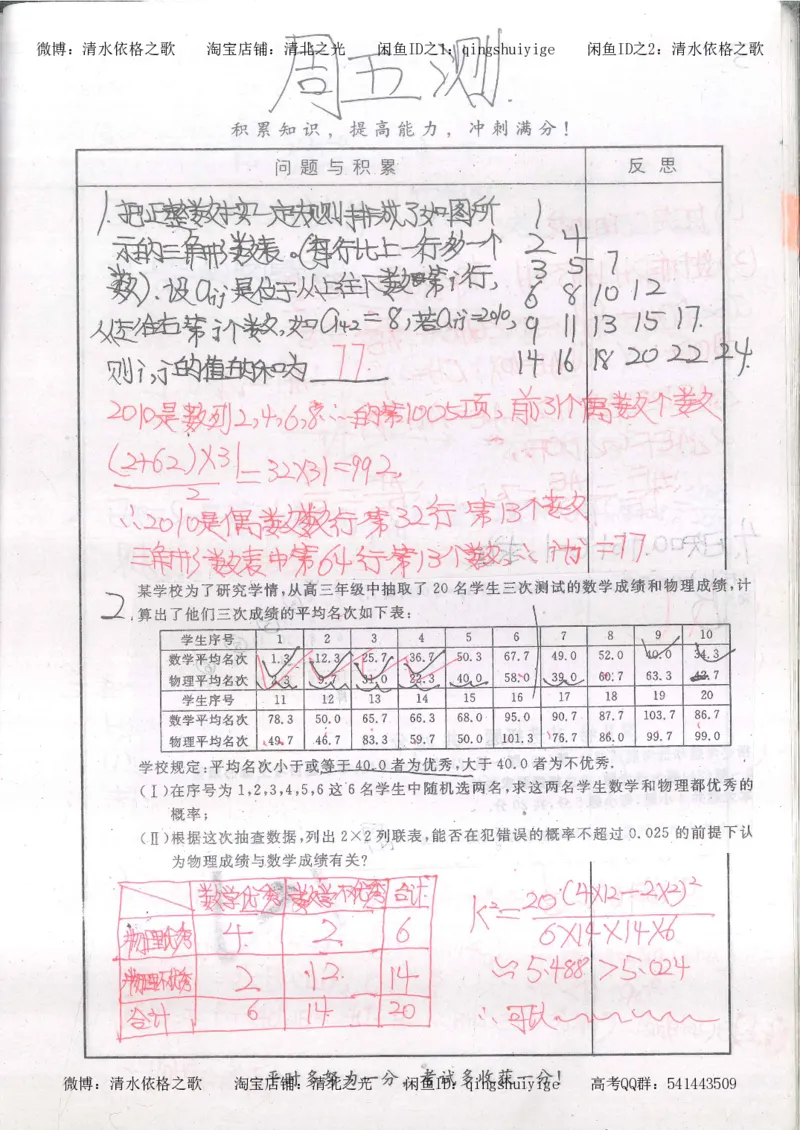 微博：清水依格之歌 淘宝店铺：清北之光 闲鱼ID之1：qingshuiyige 闲鱼ID之2：清水依格之歌
周五测.
积累知识，提高能力，冲刺满分！
问题与积累 反思
1. 把正整数按一定规则排成了如图所
示的三角形数表。(每行比上一行多一个
数). 设aij是位于从上往下数第i行，
从左往右第j个数，如a42=8，若aij=2010，
则i，j的值的和为 77
1
2 4
3 5 7
6 8 10 12
9 11 13 15 17.
14 16 18 20 22 24.
2010是数列2,4,6,8…的第1005项，前31个偶数个数
(2+62)×31/2=32×31=992.
∴2010是偶数数行第32行第13个数
三角形数表中第64行第13个数.∴i+j=77.
2. 某学校为了研究学情，从高三年级中抽取了20名学生三次测试的数学成绩和物理成绩，计
算出了他们三次成绩的平均名次如下表：
学生序号 1 2 3 4 5 6 7 8 9 10
数学平均名次 1.3 12.3 25.7 36.7 50.3 67.7 49.0 52.0 40.0 34.3
物理平均名次 2.3 9.7 31.0 22.3 40.0 58.0 39.0 60.7 63.3 42.7
学生序号 11 12 13 14 15 16 17 18 19 20
数学平均名次 78.3 50.0 65.7 66.3 68.0 95.0 90.7 87.7 103.7 86.7
物理平均名次 49.7 46.7 83.3 59.7 50.0 101.3 76.7 86.0 99.7 99.0
学校规定：平均名次小于或等于40.0者为优秀，大于40.0者为不优秀.
(Ⅰ)在序号为1,2,3,4,5,6这6名学生中随机选两名，求这两名学生数学和物理都优秀的
概率；
(Ⅱ)根据这次抽查数据，列出2×2列联表，能否在犯错误的概率不超过0.025的前提下认
为物理成绩与数学成绩有关?
数学优秀 数学不优秀 合计
物理优秀 4 2 6
物理不优秀 2 12 14
合计 6 14 20
K²=20(4×12-2×2)²/6×14×14×6
≈5.488>5.024
∴可以
平时多努力一分，考试多收获一分！
微博：清水依格之歌 淘宝店铺：清北之光 闲鱼ID：qingshuiyige 高考QQ群：541443509